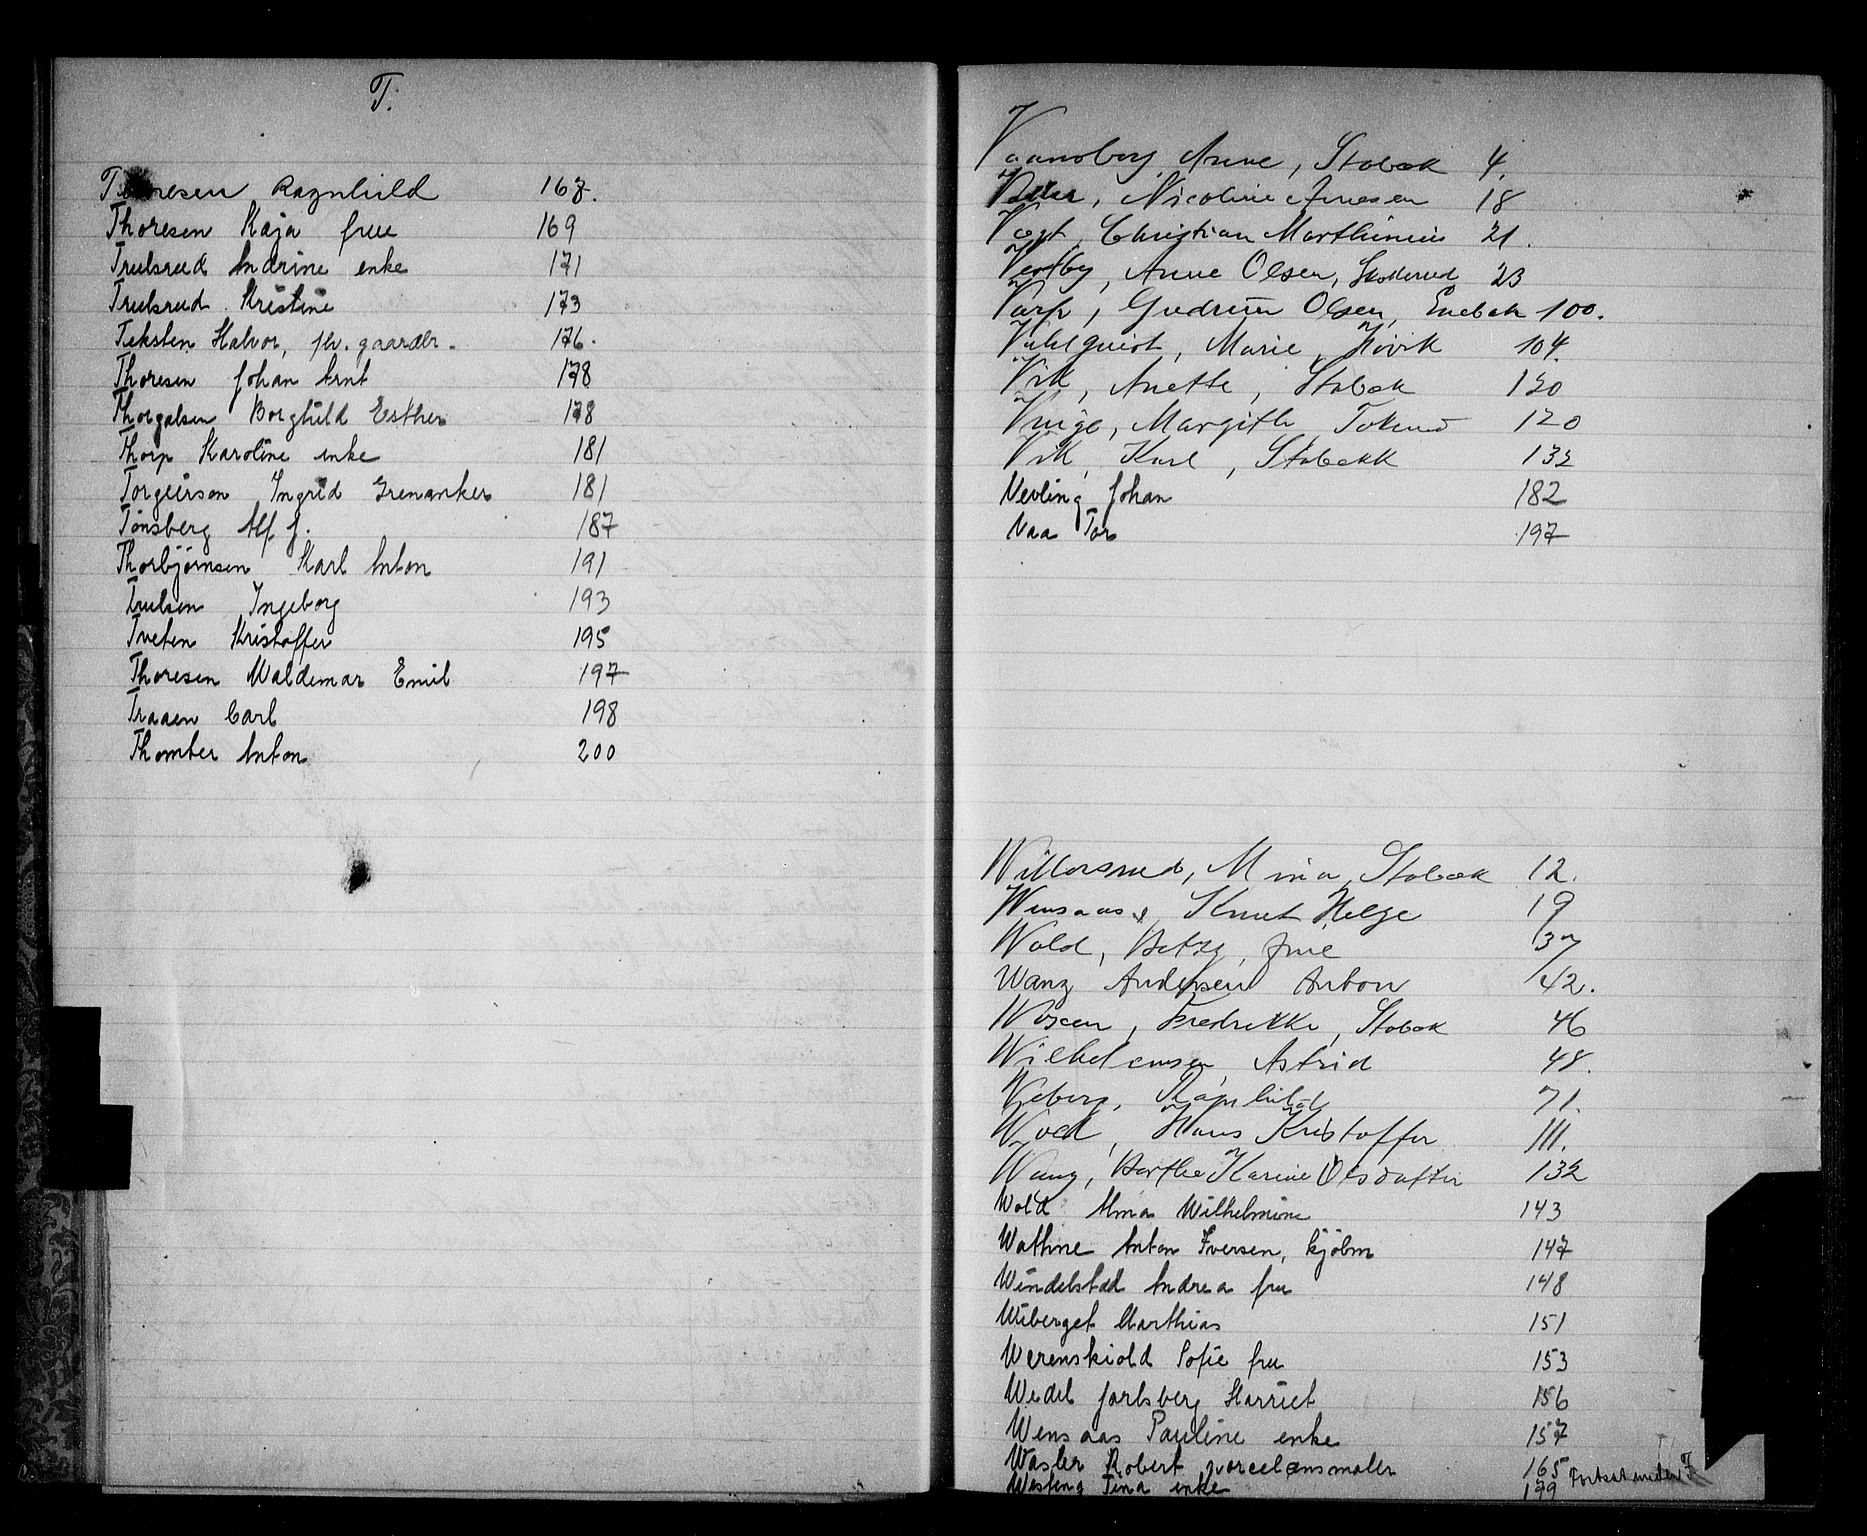 T.
Thoresen Ragnhild 167.
Thoresen Kaja frue 169
Trulsrud Andrine enke 171
Trulsrud Kristine 173
Teksten Halvor, fhv. gaardbr. 176.
Thoresen Johan Arnt 178
Thorgalsen Borghild Esther 178
Thorp Karoline enke 181
Torgeirson Ingrid Grenanker 181
Tønsberg Alf J. 187
Thorbjørnsen Karl Anton 191
Trulsen Ingeborg 193
Tveten Kristoffer 195
Thoresen Waldemar Emil 197
Traaen Carl 198
Thomter Anton 200
Anne, Stabæk 4.
Nicoline Arnesen 18
Vogt, Christian Marthinius 21.
Vestby, Anne Olsen, 23
Varp, Gudrun Olsen, Enebak 100.
Vahlquist, Marie, Høvik 104.
Vik, Anette, Stabæk 120
Margithe 120
Vik, Karl, Stabækk 132
Vevling Johan 182
Vaa Tor 197
Willersrud, Mina, Stabæk 12.
Wensaas, Knut Helge 19
Wold, Betzy, frue 37
Wang Andersen Anton 42.
Fredrikke, Stabæk 46
Wilhelmsen, Astrid 48.
Wiberg, Ragnhild 71.
Wold, Hans Kristoffer 111.
Wang, Berthe Karine Olsdatter 132
Wold Alma Wilhelmine 143
Wathne Anton Iversen, kjøbm 147
Windelstad Andrea fru 148
Wiberget Marthias 151
Werenskiold Sofie fru 153
Wedel Jarlsberg Harriet 156
Wensaas Pauline enke 157
Wasler Robert porcelænsmaler 165 Fortsat under F
Westeng Tina enke 199